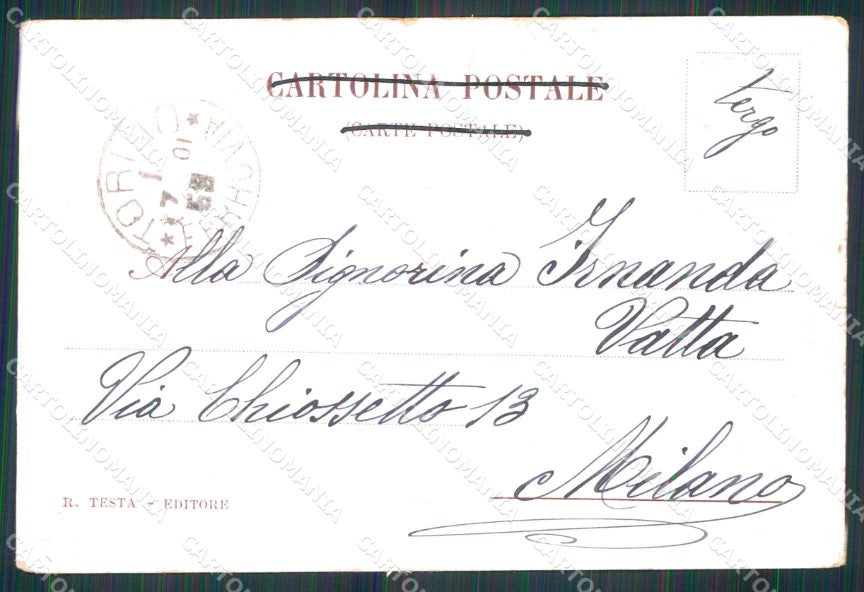 CARTOLINA POSTALE
(CARTE POSTALE)
tergo
TORINO
FERROVIA
Alla Signorina Irnanda
Vatta
Via Chiossetto 13
Milano
R. TESTA - EDITORE
CARTOLINOMANIA